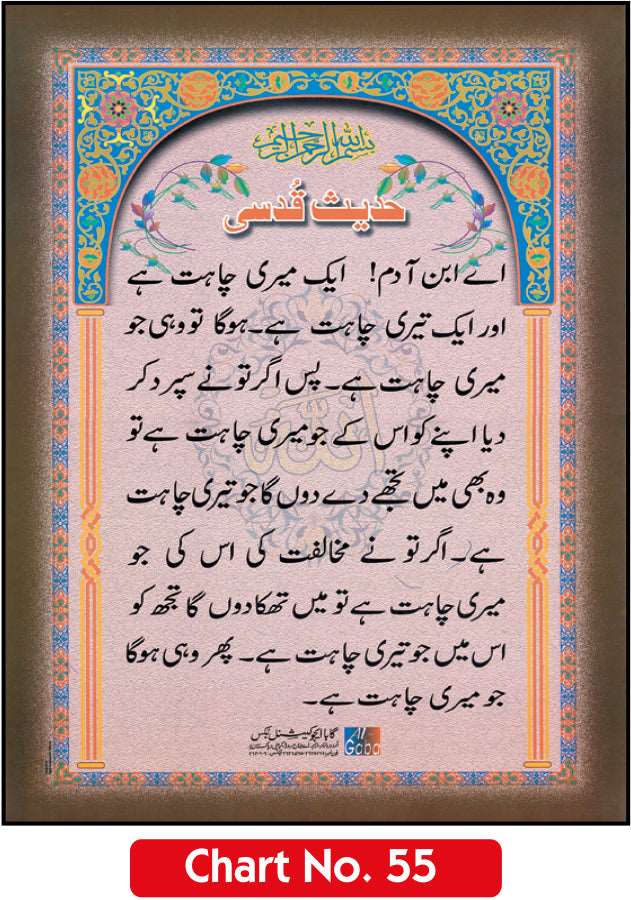 بسم اللہ الرحمن الرحیم
حدیث قُدسی
اے ابن آدم! ایک میری چاہت ہے
اور ایک تیری چاہت ہے۔ ہوگا تو وہی جو
میری چاہت ہے۔ پس اگر تو نے سپرد کر
دیا اپنے کو اس کے جو میری چاہت ہے تو
وہ بھی میں تجھے دے دوں گا جو تیری چاہت
ہے۔ اگر تو نے مخالفت کی اس کی جو
میری چاہت ہے تو میں تھکا دوں گا تجھ کو
اس میں جو تیری چاہت ہے۔ پھر وہی ہوگا
جو میری چاہت ہے۔
اللہ
گابا ایجوکیشنل بکس
Al
Gaba
Chart No. 55